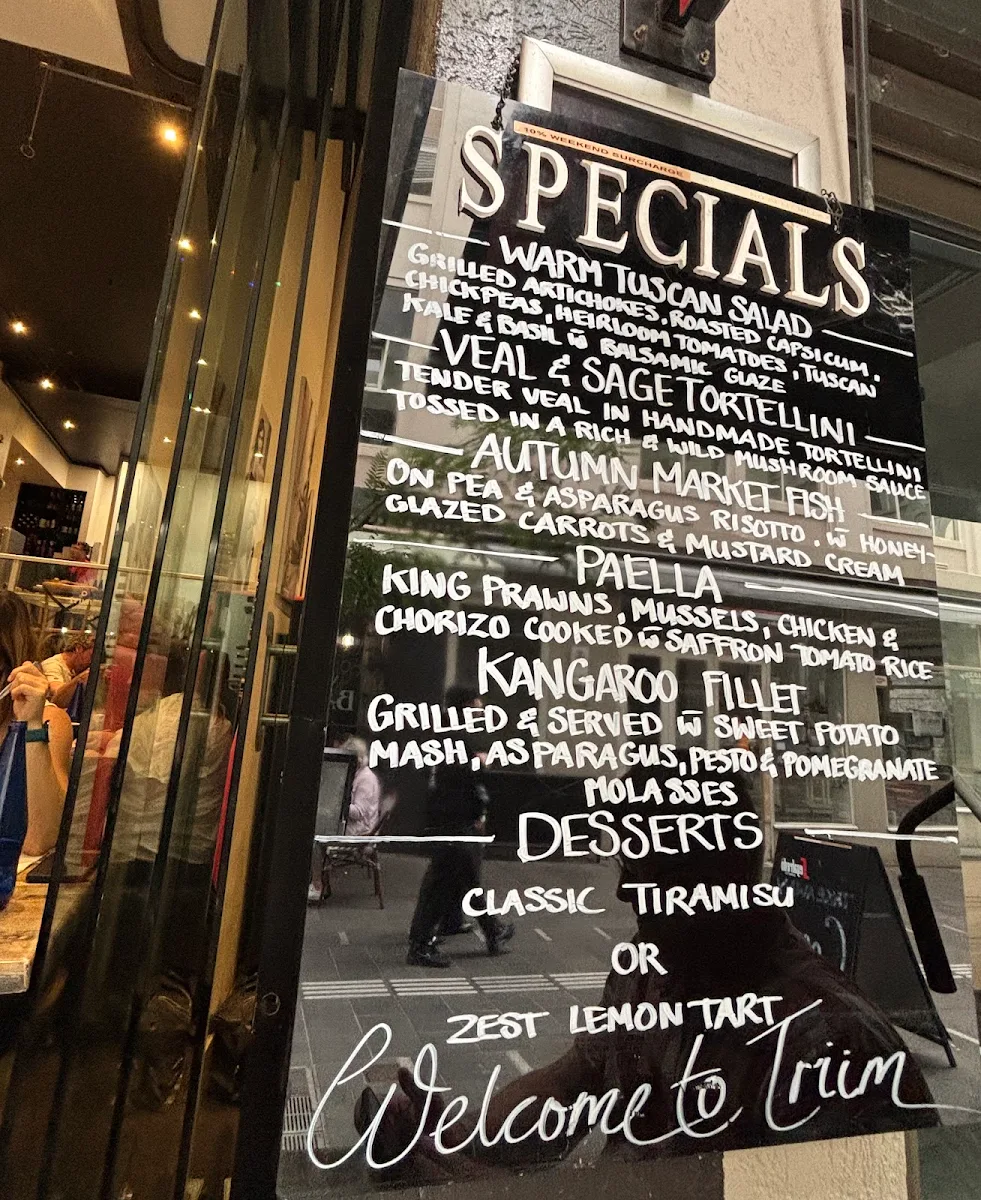 10% WEEKEND SURCHARGE
SPECIALS
WARM TUSCAN SALAD
GRILLED ARTICHOKES, ROASTED CAPSICUM,
CHICKPEAS, HEIRLOOM TOMATOES, TUSCAN
KALE & BASIL w̄ BALSAMIC GLAZE
VEAL & SAGE TORTELLINI
TENDER VEAL IN HANDMADE TORTELLINI
TOSSED IN A RICH & WILD MUSHROOM SAUCE
AUTUMN MARKET FISH
ON PEA & ASPARAGUS RISOTTO . w̄ HONEY-
GLAZED CARROTS & MUSTARD CREAM
PAELLA
KING PRAWNS, MUSSELS, CHICKEN &
CHORIZO COOKED w̄ SAFFRON TOMATO RICE
KANGAROO FILLET
GRILLED & SERVED w̄ SWEET POTATO
MASH, ASPARAGUS, PESTO & POMEGRANATE
MOLASSES
DESSERTS
CLASSIC TIRAMISU
OR
ZEST LEMON TART
Welcome to Triim